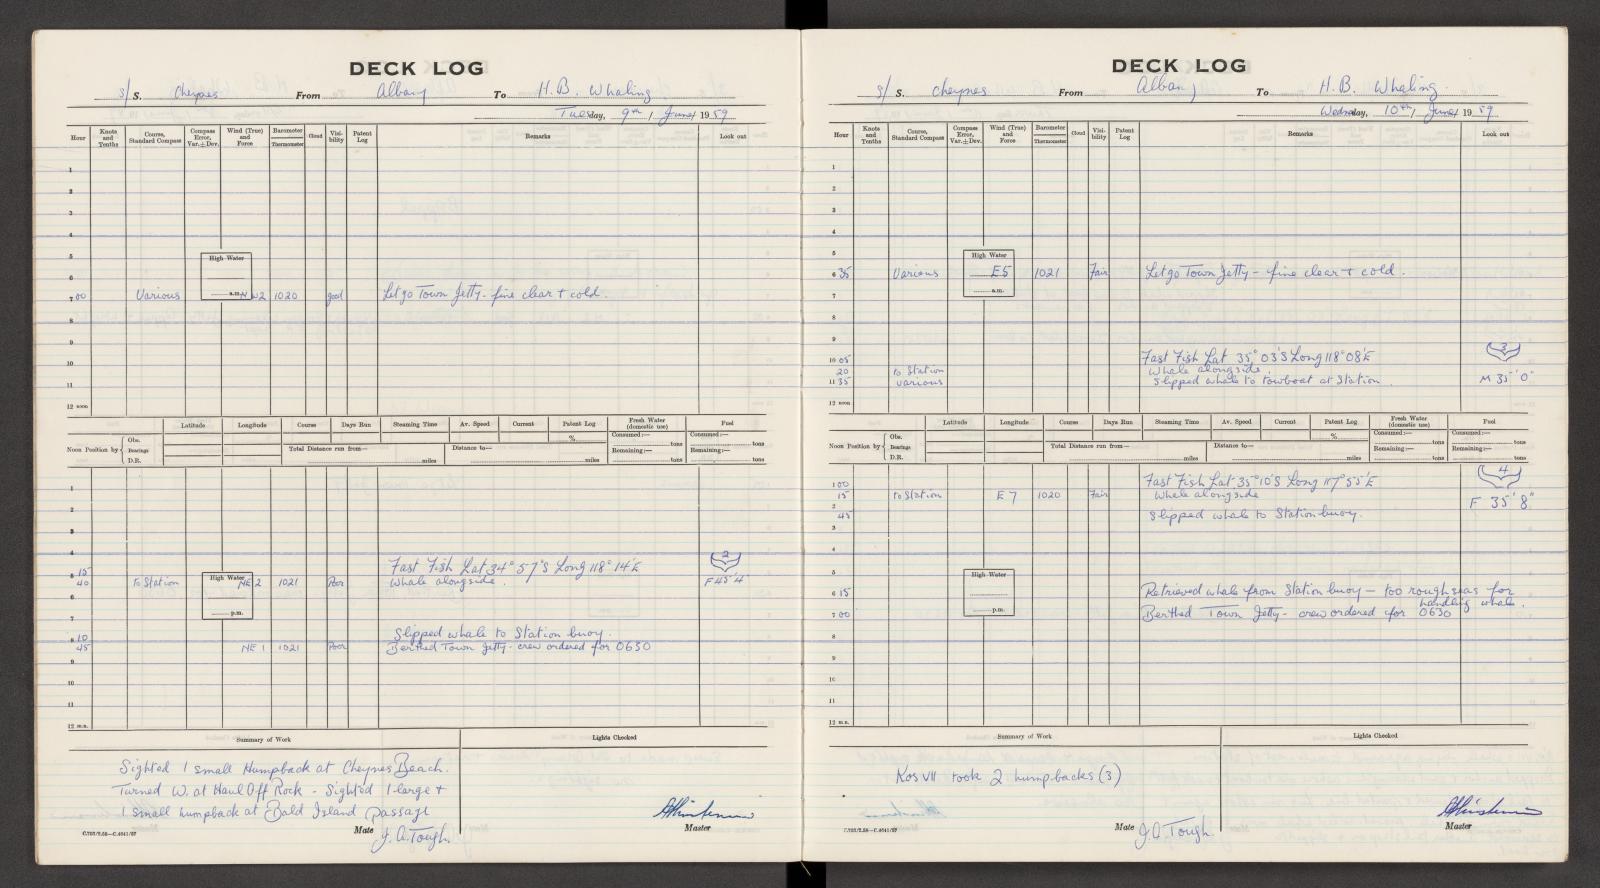 DECK LOG
S/ S. Cheynes From Albany To H. B. Whaling
Tuesday, 9th / June / 1959
Hour Knots and Tenths Course, Standard Compass Compass Error, Var.±Dev. Wind (True) and Force Barometer Thermometer Cloud Visibility Patent Log Remarks Look out
1
2
3
4
5 High Water
6
7 00 Various a.m. NW2 1020 good Let go Town Jetty - fine clear + cold.
8
9
10
11
12 noon
Latitude Longitude Course Days Run Steaming Time Av. Speed Current Patent Log Fresh Water (domestic use) Fuel
% Consumed:— tons Consumed:— tons
Noon Position by Obs. Bearings D.R. Total Distance run from— miles Distance to— miles Remaining:— tons Remaining:— tons
1
2
3
4
15 Fast Fish Lat 34° 57'S Long 118° 14'E 2
5 40 to Station High Water NE 2 1021 Poor Whale alongside. F 45'4"
6
p.m.
7
10 Slipped whale to Station buoy.
8 45 NE 1 1021 Poor Berthed Town Jetty - crew ordered for 0630
9
10
11
12 m.n.
Summary of Work Lights Checked
Sighted 1 small Humpback at Cheynes Beach.
Turned W. at Haul Off Rock - Sighted 1 large +
1 small humpback at Bald Island passage
C.723/2.58—C.4041/57 Mate J. A. Tough. Master
DECK LOG
S/ S. Cheynes From Albany To H. B. Whaling.
Wednesday, 10th / June / 1959
Hour Knots and Tenths Course, Standard Compass Compass Error, Var.±Dev. Wind (True) and Force Barometer Thermometer Cloud Visibility Patent Log Remarks Look out
1
2
3
4
5 High Water
6 35 Various E5 1021 Fair Let go Town Jetty - fine clear + cold.
a.m.
7
8
9
10 05 Fast Fish Lat 35° 03'S Long 118° 08'E 3
20 to Station Whale alongside.
11 35 various Slipped whale to towboat at Station. M 35' 0"
12 noon
Latitude Longitude Course Days Run Steaming Time Av. Speed Current Patent Log Fresh Water (domestic use) Fuel
% Consumed:— tons Consumed:— tons
Noon Position by Obs. Bearings D.R. Total Distance run from— miles Distance to— miles Remaining:— tons Remaining:— tons
1 00 Fast Fish Lat 35°10'S Long 117°55'E 4
15 to Station E 7 1020 Fair Whale alongside F 35' 8"
2
45 Slipped whale to Station buoy.
3
4
5 High Water
6 15 Retrieved whale from Station buoy — too rough seas for
handling whale.
7 00 p.m. Berthed Town Jetty - crew ordered for 0630
8
9
10
11
12 m.n.
Summary of Work Lights Checked
Kos VII took 2 humpbacks (3)
C.723/2.58—C.4041/57 Mate J. A. Tough. Master